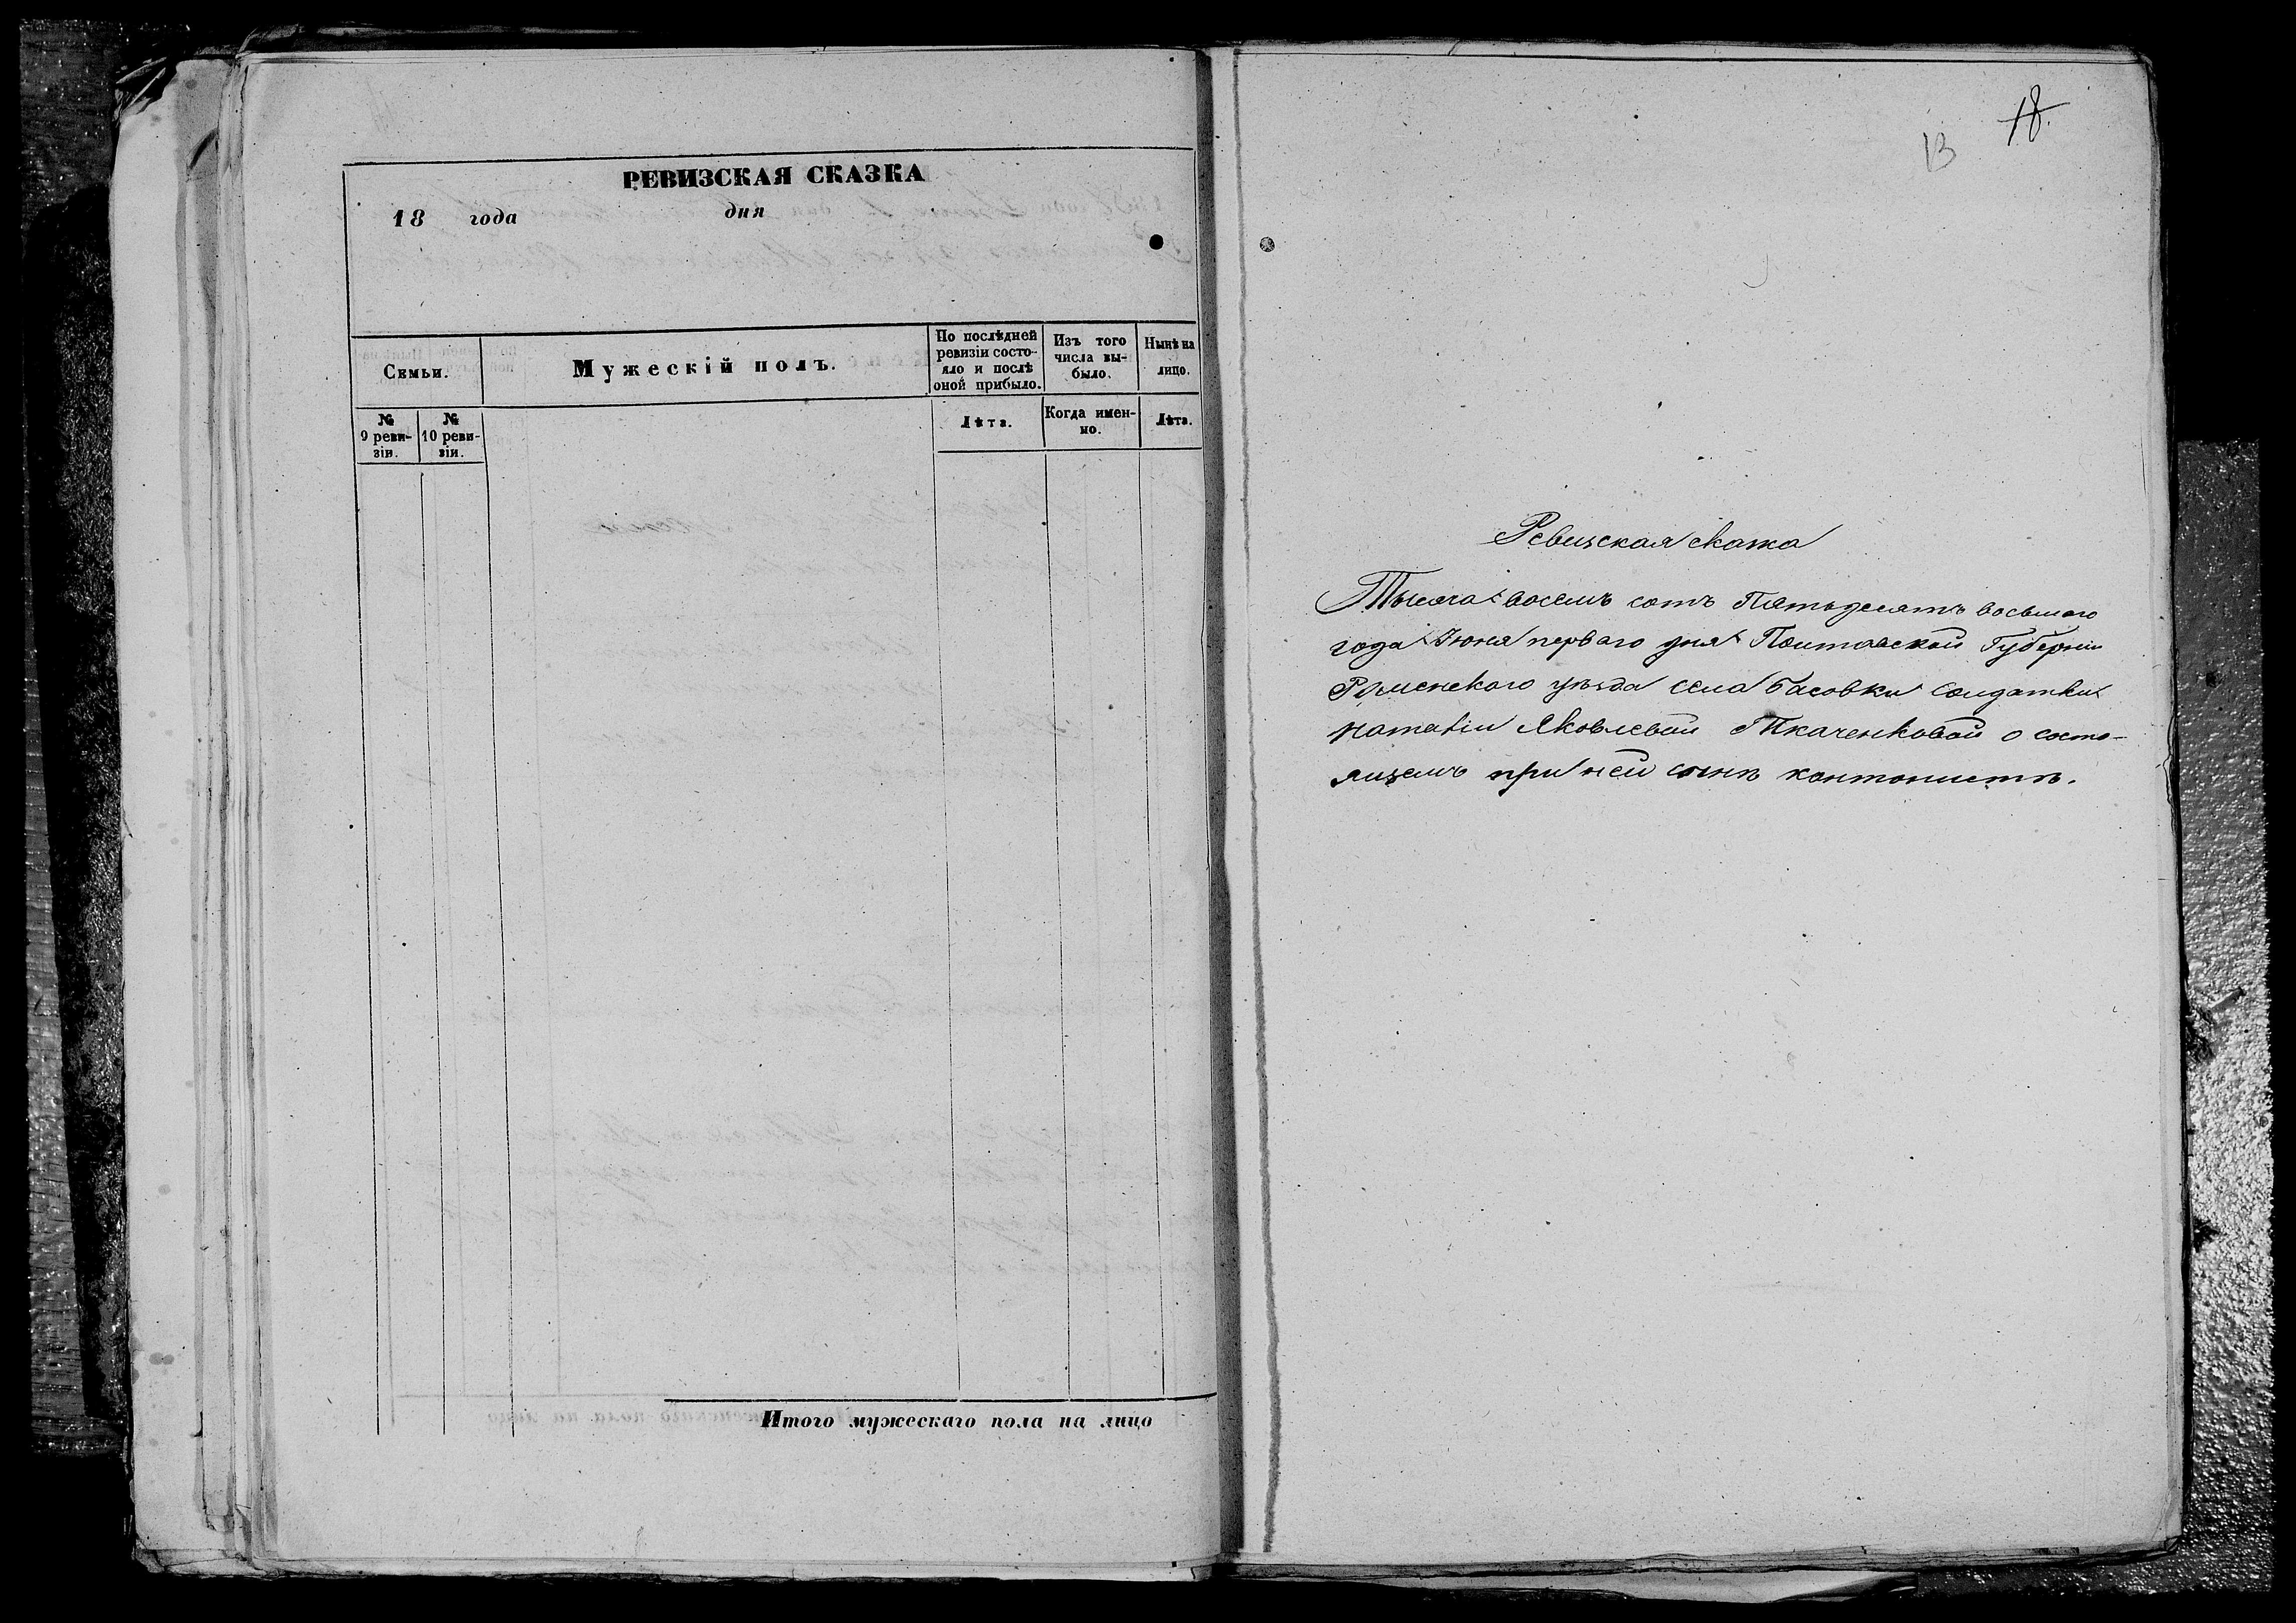 РЕВИЗСКАЯ СКАЗКА
18 года дня
Семьи.
Мужескій полъ.
По послѣдней ревизіи состо-
яло и послѣ оной прибыло.
Изъ того числа вы-
было.
Нынѣ на лицо.
№ 9 реви-
зіи.
№ 10 реви-
зіи.
Лѣта.
Когда имен-
но.
Лѣта.
Итого мужескаго пола на лицо
13 18.
Ревизская сказка
Тысяча восемь сотъ Пятьдесятъ восьмого
года Іюня перваго дня Полтавской Губерніи
Роменского уѣзда села Басовки солдатки
Наталіи Яковлевой Ткаченковой о состо-
ящемъ при ней сынѣ кантонистѣ.